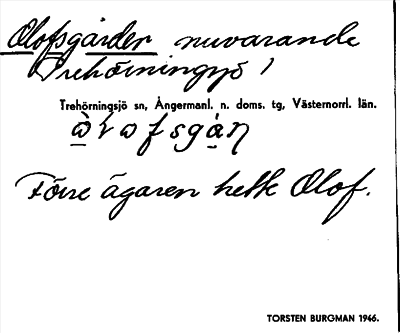 Olofsgården nuvarande
Trehörningsjö 1
Trehörningsjö sn, Ångermanl. n. doms. tg, Västernorrl. län.
Förre ägaren hette Olof.
TORSTEN BURGMAN 1946.